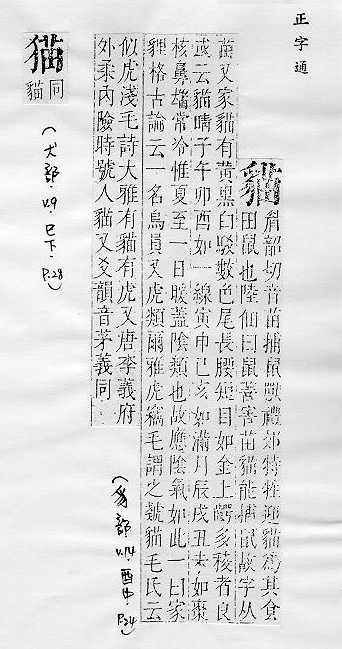 正字通
貓
眉韶切音苗捕鼠獸禮郊特牲迎貓為其食
田鼠也陸佃曰鼠善害苗貓能捕鼠故字从
苗又家貓有黃黑白駁數色尾長腰短目如金上齶多稜者良
或云貓睛子午卯酉如一線寅申巳亥如滿月辰戌丑未如棗
核鼻端常冷惟夏至一日暖蓋陰類也故應陰氣如此一曰家
貍格古論云一名烏員又虎類爾雅虎竊毛謂之虦貓毛氏云
似虎淺毛詩大雅有貓有虎又唐李義府
外柔內險時號人貓又爻韻音茅義同
(豸部·V.14·酉中·P.24)
猫
同
貓
(犬部·V.9·巳下·P.28)